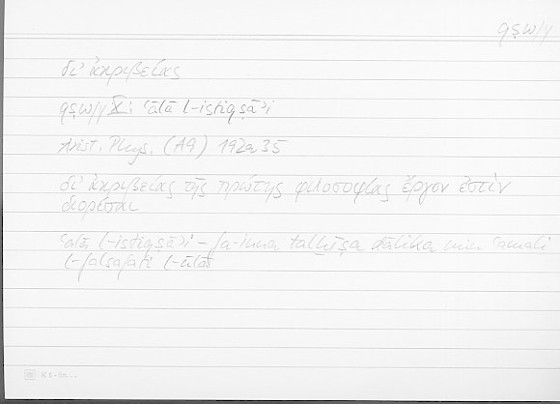 qṣw/y
δι' ἀκριβείας
qṣw/y X: ʿalā l-istiqṣāʾi
Arist. Phys. (A9) 192a35
δι' ἀκριβείας τῆς πρώτης φιλοσοφίας ἔργον ἐστὶν
διορίσαι
ʿalā l-istiqṣāʾi – fa-inna talḫīṣa ḏālika min ʿamali
l-falsafati l-ūlā